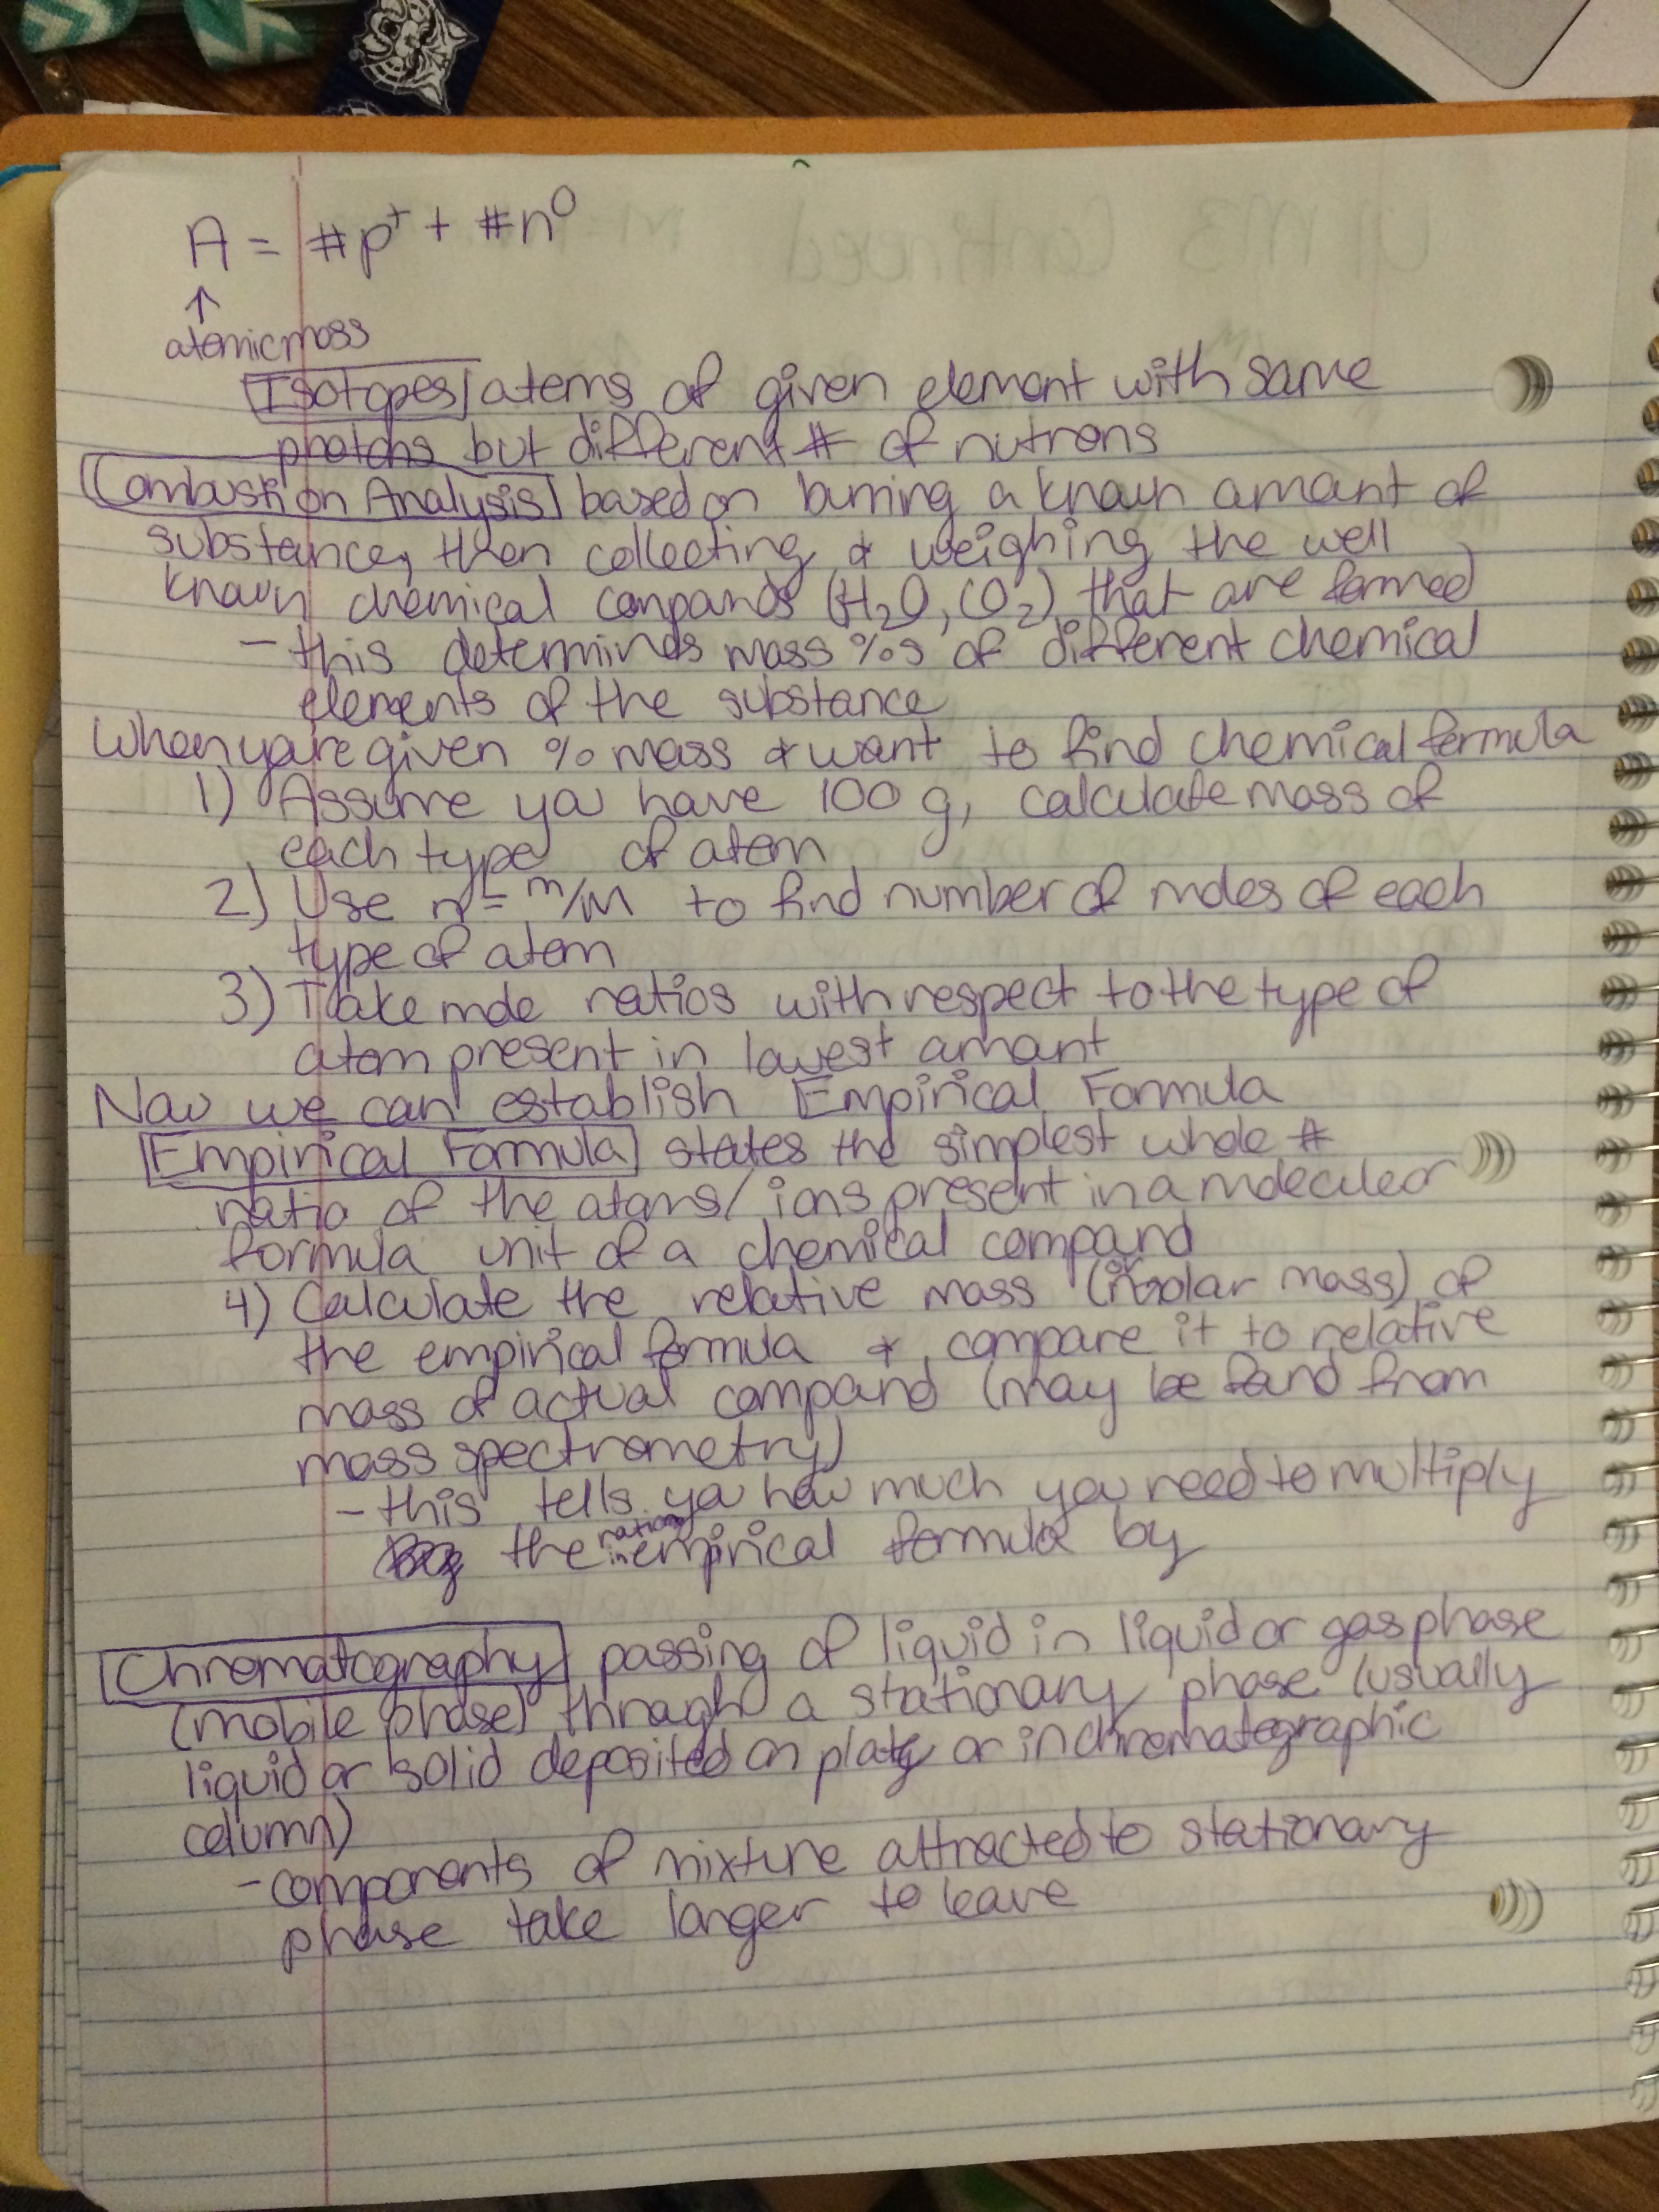 A = #p⁺ + #n⁰
↑
atomic mass
Isotopes atoms of given element with same
photons but different # of nutrons
Combustion Analysis based on burning a known amount of
substance, then collecting & weighing the well
known chemical compounds (H₂O, CO₂) that are formed
- this determines mass %s of different chemical
elements of the substance
When you're given % mass & want to find chemical formula
1) Assume you have 100 g, calculate mass of
each type of atom
2) Use n = m/M to find number of moles of each
type of atom
3) Take mole ratios with respect to the type of
atom present in lowest amount
Now we can establish Empirical Formula
Empirical Formula states the simplest whole #
ratio of the atoms/ions present in a molecule or
formula unit of a chemical compound
4) Calculate the relative mass (or molar mass) of
the empirical formula & compare it to relative
mass of actual compound (may be found from
mass spectrometry)
- this tells you how much you need to multiply
the ratios in empirical formula by
Chromatography passing of liquid in liquid or gas phase
(mobile phase) through a stationary phase (usually
liquid or solid deposited on plate or in chromatographic
column)
- components of mixture attracted to stationary
phase take longer to leave